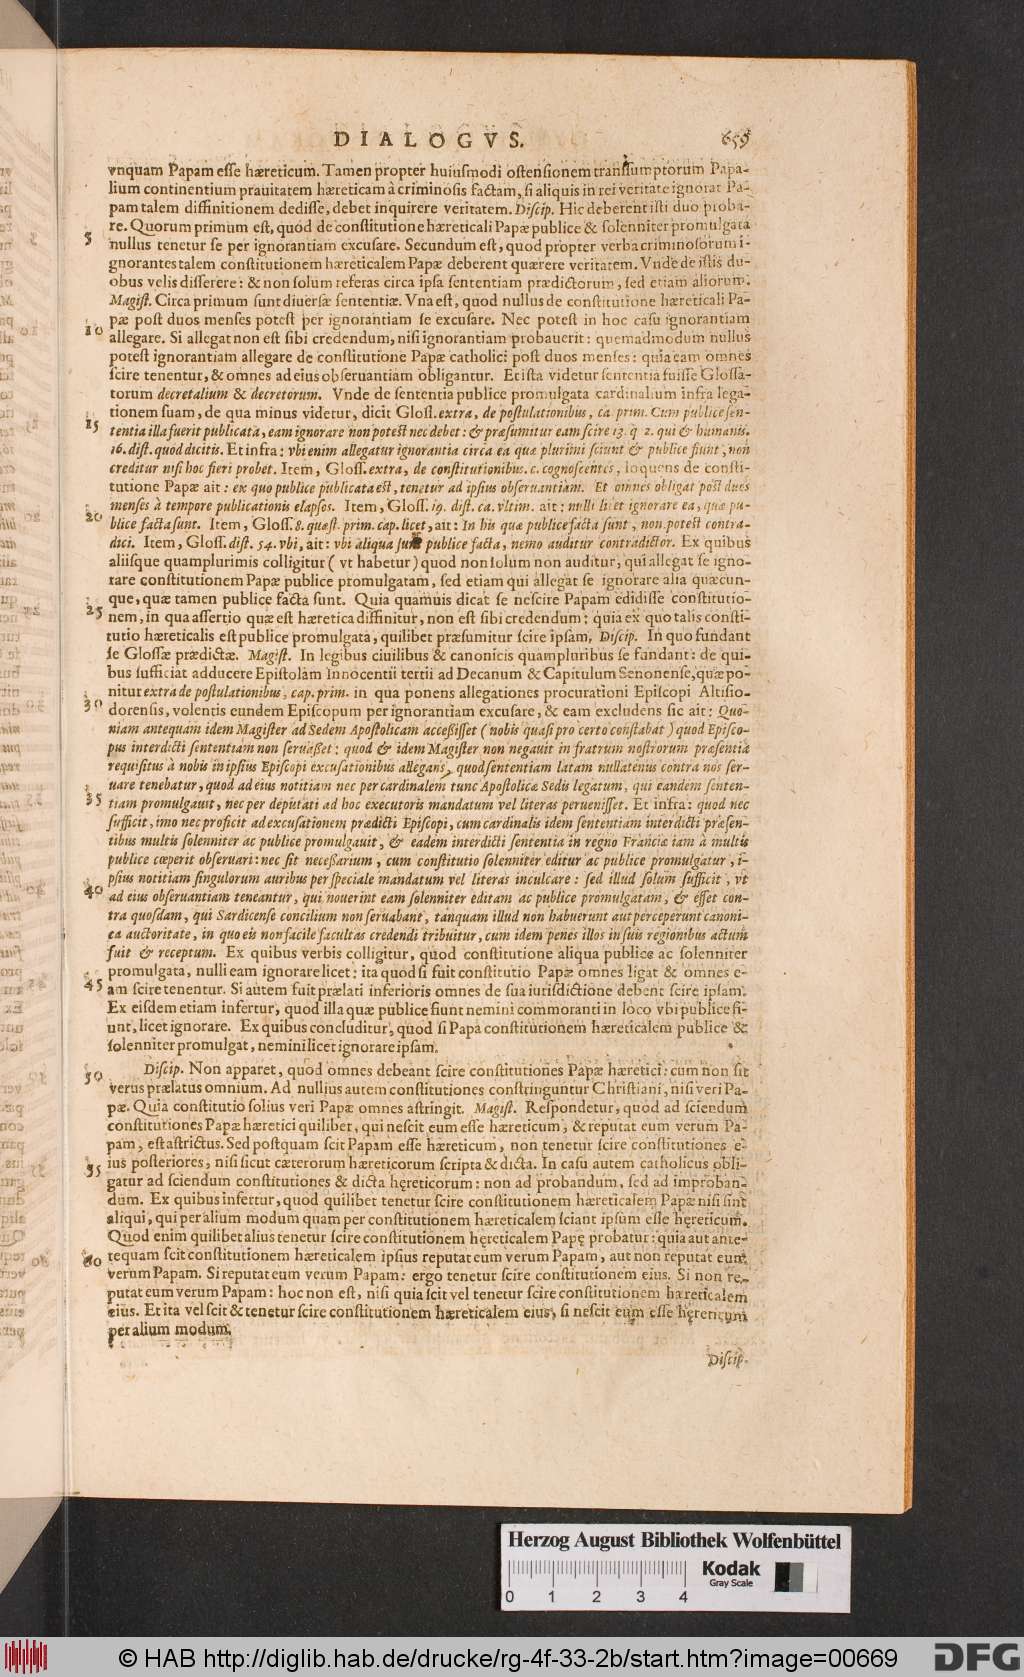 DIALOGVS. 655
vnquam Papam esse hæreticum. Tamen propter huiusmodi ostensionem transsumptorum Papa-
lium continentium prauitatem hæreticam à criminosis factam, si aliquis in rei veritate ignorat Pa-
pam talem diffinitionem dedisse, debet inquirere veritatem. Discip. Hic deberent isti duo proba-
re. Quorum primum est, quòd de constitutione hæreticali Papæ publice & solenniter promulgata
5 nullus tenetur se per ignorantiam excusare. Secundum est, quod propter verba criminosorum i-
gnorantes talem constitutionem hæreticalem Papæ deberent quærere veritatem. Vnde de istis du-
obus velis disserere: & non solùm referas circa ipsa sententiam prædictorum, sed etiam aliorum.
Magist. Circa primum sunt diuersæ sententiæ. Vna est, quod nullus de constitutione hæreticali Pa-
pæ post duos menses potest per ignorantiam se excusare. Nec potest in hoc casu ignorantiam
10 allegare. Si allegat non est sibi credendum, nisi ignorantiam probauerit: quemadmodum nullus
potest ignorantiam allegare de constitutione Papæ catholici post duos menses: quia eam omnes
scire tenentur, & omnes ad eius obseruantiam obligantur. Et ista videtur sententia fuisse Glossa-
torum decretalium & decretorum. Vnde de sententia publice promulgata cardinalium infra lega-
tionem suam, de qua minus videtur, dicit Gloss. extra, de postulationibus, ca. prim. Cum publice sen-
15 tentia illa fuerit publicata, eam ignorare non potest nec debet: & præsumitur eam scire 13. q 2. qui & humanis.
16. dist. quod dicitis. Et infra: vbi enim allegatur ignorantia circa ea quæ plurimi sciunt & publice fiunt, non
creditur nisi hoc fieri probet. Item, Gloss. extra, de constitutionibus. c. cognoscentes, loquens de consti-
tutione Papæ ait: ex quo publice publicata est, tenetur ad ipsius obseruantiam. Et omnes obligat post duos
menses à tempore publicationis elapsos. Item, Gloss. 19. dist. ca. vltim. ait: nulli licet ignorare ea, quæ pu-
20 blice facta sunt. Item, Gloss. 8. quæst. prim. cap. licet, ait: In his quæ publice facta sunt, non potest contra-
dici. Item, Gloss. dist. 54. vbi, ait: vbi aliqua sunt publice facta, nemo auditur contradictor. Ex quibus
aliisque quamplurimis colligitur (vt habetur) quod non solum non auditur, qui allegat se igno-
rare constitutionem Papæ publice promulgatam, sed etiam qui allegat se ignorare alia quæcun-
que, quæ tamen publice facta sunt. Quia quamuis dicat se nescire Papam edidisse constitutio-
25 nem, in qua assertio quæ est hæretica diffinitur, non est sibi credendum: quia ex quo talis consti-
tutio hæreticalis est publice promulgata, quilibet præsumitur scire ipsam, Discip. In quo fundant
se Glossæ prædictæ. Magist. In legibus ciuilibus & canonicis quampluribus se fundant: de qui-
bus sufficiat adducere Epistolam Innocentii tertii ad Decanum & Capitulum Senonense, quæ po-
nitur extra de postulationibus, cap. prim. in qua ponens allegationes procurationi Episcopi Altisio-
30 dorensis, volentis eundem Episcopum per ignorantiam excusare, & eam excludens sic ait: Quo-
niam antequam idem Magister ad Sedem Apostolicam accessisset (nobis quasi pro certo constabat) quod Episco-
pus interdicti sententiam non seruasset: quod & idem Magister non negauit in fratrum nostrorum præsentia
requisitus à nobis in ipsius Episcopi excusationibus allegans, quod sententiam latam nullatenus contra nos ser-
uare tenebatur, quod ad eius notitiam nec per cardinalem tunc Apostolicæ Sedis legatum, qui eandem senten-
35 tiam promulgauit, nec per deputati ad hoc executoris mandatum vel literas peruenisset. Et infra: quod nec
sufficit, imo nec proficit ad excusationem prædicti Episcopi, cum cardinalis idem sententiam interdicti præsen-
tibus multis solenniter ac publice promulgauit, & eadem interdicti sententia in regno Franciæ iam à multis
publice cœperit obseruari: nec sit necessarium, cum constitutio solenniter editur ac publice promulgatur, i-
psius notitiam singulorum auribus per speciale mandatum vel literas inculcare: sed illud solum sufficit, vt
40 ad eius obseruantiam teneantur, qui nouerint eam solenniter editam ac publice promulgatam, & esset con-
tra quosdam, qui Sardicense concilium non seruabant, tanquam illud non habuerunt aut perceperunt canoni-
ca auctoritate, in quo eis non facile facultas credendi tribuitur, cum idem penes illos in suis regionibus actum
fuit & receptum. Ex quibus verbis colligitur, quod constitutione aliqua publice ac solenniter
promulgata, nulli eam ignorare licet: ita quod si fuit constitutio Papæ omnes ligat & omnes e-
45 am scire tenentur. Si autem fuit prælati inferioris omnes de sua iurisdictione debent scire ipsam.
Ex eisdem etiam infertur, quod illa quæ publice fiunt nemini commoranti in loco vbi publice fi-
unt, licet ignorare. Ex quibus concluditur, quod si Papa constitutionem hæreticalem publice &
solenniter promulgat, nemini licet ignorare ipsam.
50 Discip. Non apparet, quod omnes debeant scire constitutiones Papæ hæretici: cum non sit
verus prælatus omnium. Ad nullius autem constitutiones constringuntur Christiani, nisi veri Pa-
pæ. Quia constitutio solius veri Papæ omnes astringit. Magist. Respondetur, quod ad sciendum
constitutiones Papæ hæretici quilibet, qui nescit eum esse hæreticum, & reputat eum verum Pa-
pam, est astrictus. Sed postquam scit Papam esse hæreticum, non tenetur scire constitutiones e-
55 ius posteriores, nisi sicut cæterorum hæreticorum scripta & dicta. In casu autem catholicus obli-
gatur ad sciendum constitutiones & dicta hęreticorum: non ad probandum, sed ad improban-
dum. Ex quibus infertur, quod quilibet tenetur scire constitutionem hæreticalem Papæ nisi sint
aliqui, qui per alium modum quam per constitutionem hæreticalem sciant ipsum esse hęreticum.
Quod enim quilibet alius tenetur scire constitutionem hęreticalem Papę probatur: quia aut ante-
60 tequam scit constitutionem hæreticalem ipsius reputat eum verum Papam, aut non reputat eum
verum Papam. Si reputat eum verum Papam: ergo tenetur scire constitutionem eius. Si non re-
putat eum verum Papam: hoc non est, nisi quia scit vel tenetur scire constitutionem hæreticalem
eius. Et ita vel scit & tenetur scire constitutionem hæreticalem eius, si nescit eum esse hęreticum
per alium modum.
Discip.
Herzog August Bibliothek Wolfenbüttel
Kodak
Gray Scale
0 1 2 3 4
© HAB http://diglib.hab.de/drucke/rg-4f-33-2b/start.htm?image=00669
DFG